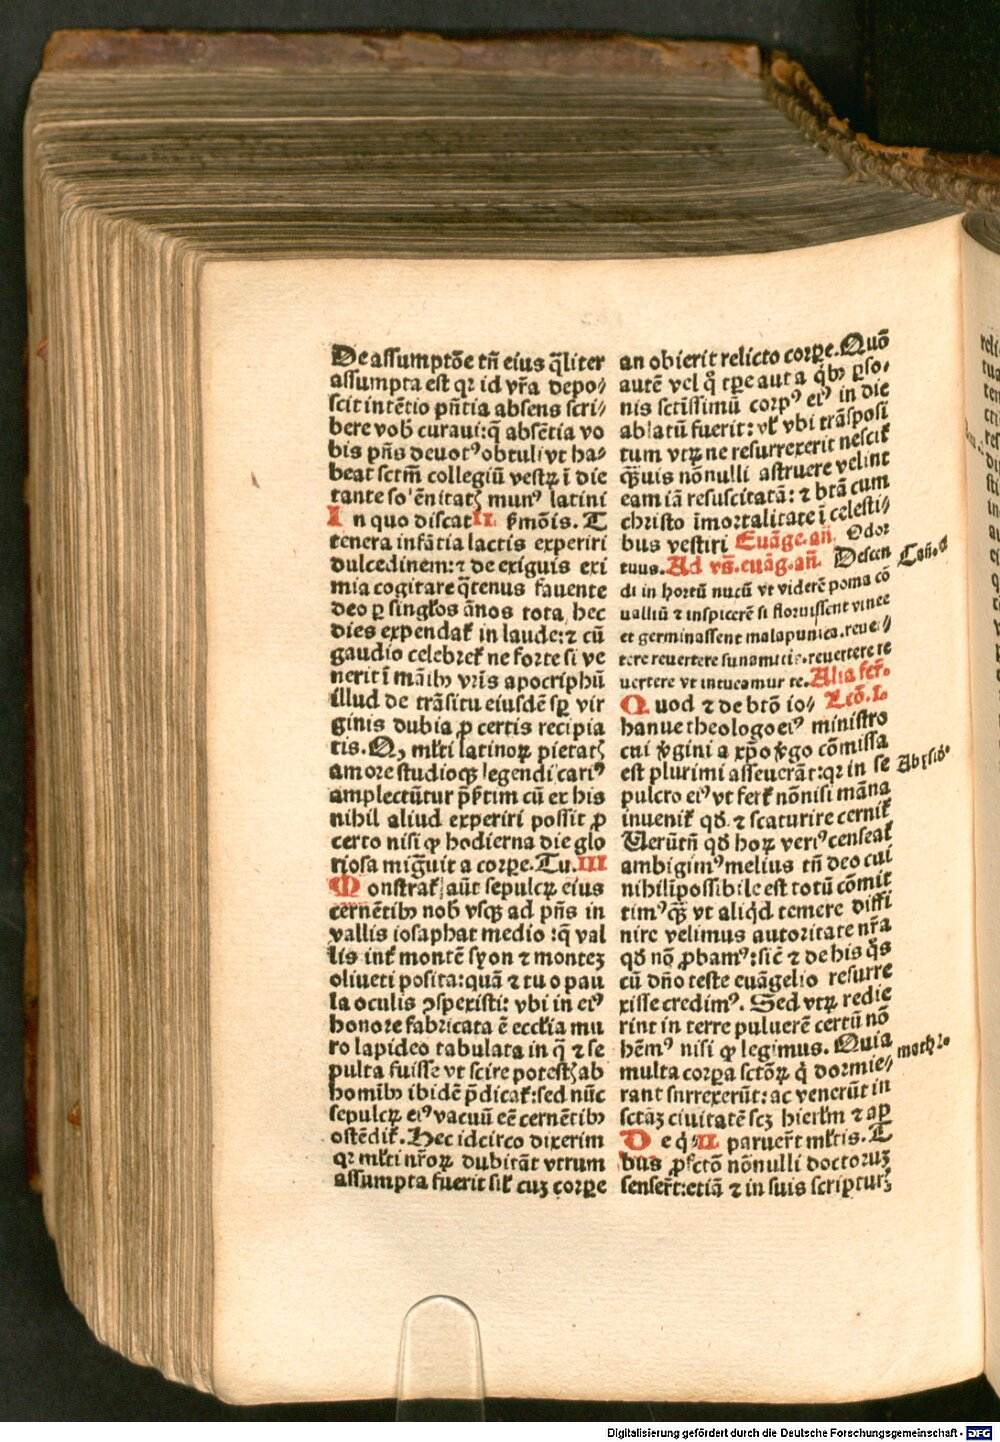 De assumptõe tñ eius q̃liter
assumpta est qr id vr̃a depo⸗
scit intẽtio pñtia absens scri⸗
bere vob̃ curaui:q̃ absẽtia vo
bis pñs deuotꝰ obtuli vt ha⸗
beat sctm̃ collegiũ vestꝝ ĩ die
tante so'ẽnitatꝭ munꝰ latini
In quo discat II. ẜmõis. T
tenera infãtia lactis experiri
dulcedinem:⁊ de exiguis exi
mia cogitare q̃tenus fauente
deo ꝑ singl'os ãnos tota hec
dies expendat᷑ in laude:⁊ cũ
gaudio celebret᷑ ne forte si ve
nerit ĩ mãibꝫ vr̃is apocriphũ
illud de trãsitu eiusdẽ sꝑ vir
ginis dubia ꝓ certis recipia
tis. Qꝫ ml'ti latinoꝝ pietatꝭ
amore studioqꝫ legendi cariꝰ
amplectũtur p̃ẜtim cũ ex his
nihil aliud experiri possit ꝓ
certo nisi ꝙ hodierna die glo
riosa mig̃uit a corꝑe. Tu. III
Monstrat᷑ aũt sepulcꝝ eius
cernẽtibꝫ nob̃ vsqꝫ ad pñs in
vallis iosaphat medio :q̃ val
lis int᷑ montẽ syon ⁊ monteꝫ
oliueti posita:quã ⁊ tu o pau
la oculis ꝯspexisti: vbi in eiꝰ
honore fabricata ẽ eccl'ia mu
ro lapideo tabulata in q̃ ⁊ se
pulta fuisse vt scire potestꝭ ab
homĩbꝫ ibidẽ p̃dicat᷑:sed nũc
sepulcꝝ eiꝰ vacuũ eẽ cernẽtibꝫ
ostẽdit᷑. Hec idcirco dixerim
qr ml'ti nr̃oꝝ dubitãt vtrum
assumpta fuerit sil' cuꝫ corꝑe
an obierit relicto corꝑe. Quõ
autẽ vel q̊ tꝑe aut a q̃bꝫ ꝑso⸗
nis sctĩssimũ corpꝰ eiꝰ in die
ablatũ fuerit: vl' vbi trãsposi
tum vtꝝ ne resurrexerit nescit᷑
q̃uis nõnulli astruere velint
eam iã resuscitatã: ⁊ btã cum
christo ĩmortalitate ĩ celesti⸗
bus vestiri Euãge. añ. Odor
tuus. Ad vs̃. euãg. añ. Descen
di in hortũ nucũ vt viderẽ poma cõ
Cañ. 6
ualliũ ⁊ inspicerẽ si floruissent vinee
et germinassent malapunica. reuer⸗
tere reuertere sunamitis. reuertere re
uertere vt intueamur te. Alia fer̃.
Quod ⁊ de btõ io⸗ Lcõ. I.
hanne theologo eiꝰ ministro
cui v̓gini a xp̃o v̓go cõmissa
est plurimi asseuerãt:qr in se
pulcro eiꝰ vt fert᷑ nõnisi mãna
inuenit᷑ qđ ⁊ scaturire cernit᷑
Uerũtñ qđ hoꝝ veriꝰ censeat᷑
ambigimꝰ melius tñ deo cui
nihil ĩpossibile est totũ cõmit
timꝰ q̃ vt aliq̇d temere diffi
nire velimus autoritate nr̃a
qđ nõ ꝓbamꝰ:sic ⁊ de his q̃s
cũ dño teste euãgelio resurre
xisse credimꝰ. Sed vtꝝ redie
rint in terre puluerẽ certũ nõ
hẽmꝰ nisi ꝙ legimus. Quia
math 2.
multa corꝑa sctõꝝ q̇ dormie⸗
rant surrexerũt: ac venerũt in
sctãꝫ ciuitatẽ scꝫ hierl'm ⁊ aꝑ
De q̇⸗ II. paruer̃t ml'tis. L
bus ꝓfctõ nõnulli doctoruꝫ
senser̃t:etiã ⁊ in suis scripturꝭ
Digitalisierung gefördert durch die Deutsche Forschungsgemeinschaft - DFG